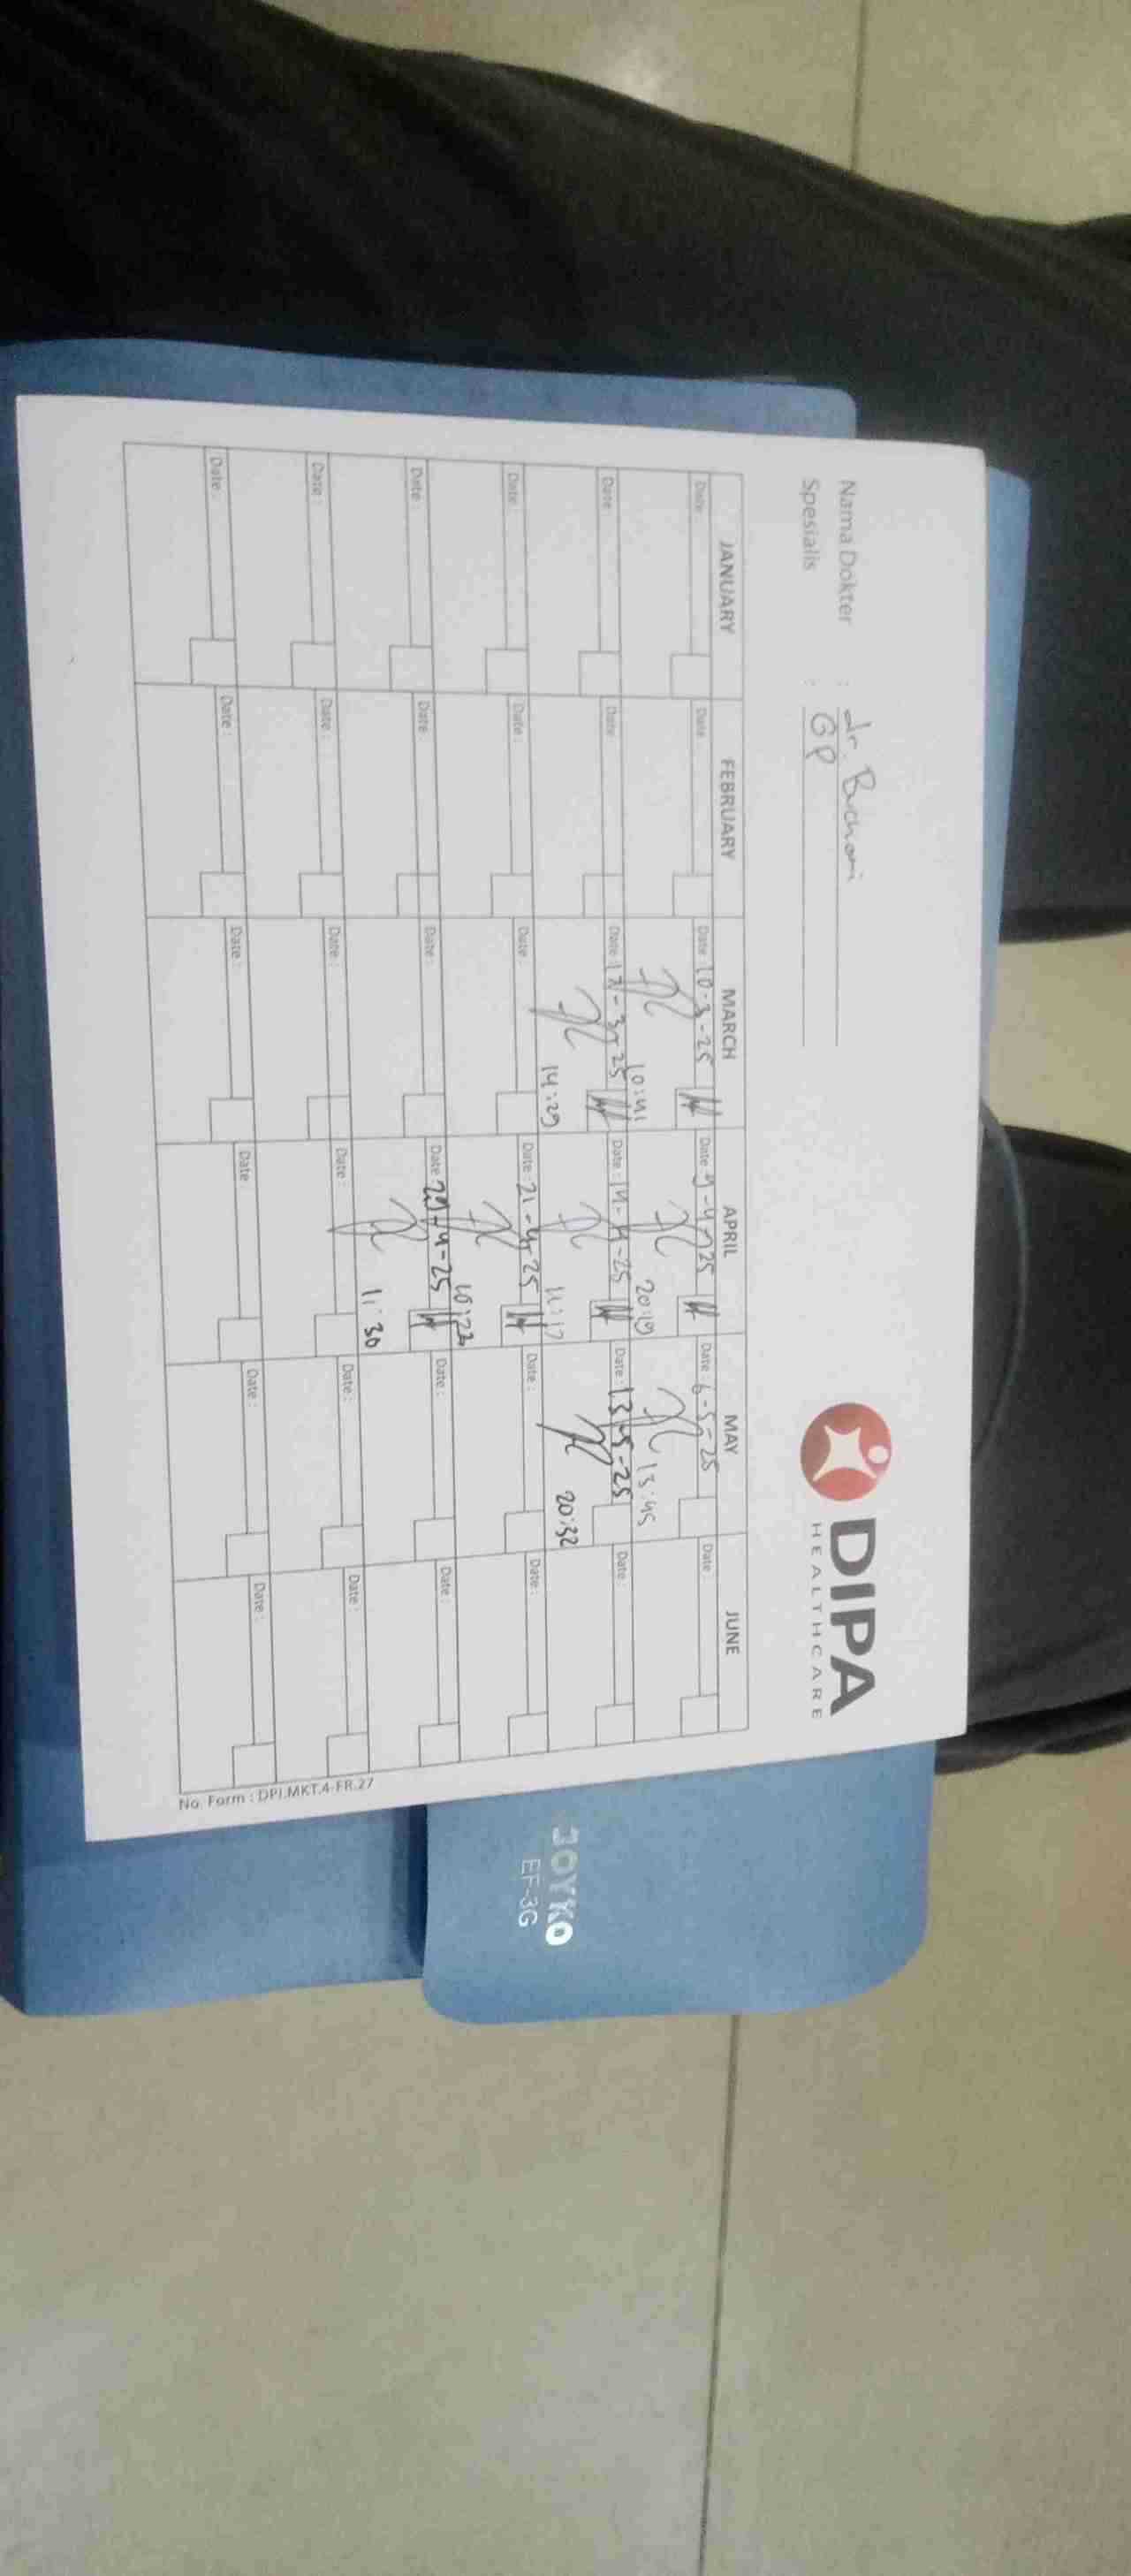 DIPA
HEALTHCARE
Nama Dokter : dr. Buchori
Spesialis : GP
JANUARY FEBRUARY MARCH APRIL MAY JUNE
Date : Date : Date : 10-3-25 Date : 9-4-25 Date : 6-5-25 Date :
10:41 20:19 13:45
Date : Date : Date : 17-3-25 Date : 14-4-25 Date : 13-5-25 Date :
14:29 11:17 20:32
Date : Date : Date : Date : 21-4-25 Date : Date :
Date : Date : Date : Date : 29-4-25 Date : Date :
11:30
Date : Date : Date : Date : Date : Date :
Date : Date : Date : Date : Date : Date :
No. Form : DPI.MKT.4-FR.27
JOYKO
EF-3G